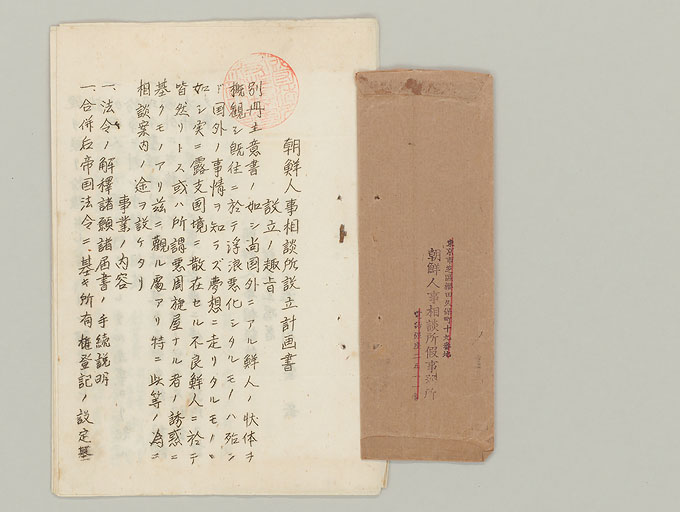 朝鮮人事相談所設立計画書
設立ノ趣旨
別冊主意書ノ如シ尚国外ニアル鮮人ノ状体ヲ
概観シ既往ニ於テ浮浪悪化シタルモノハ殆ン
ド国外ノ事情ヲ知ラズ夢想ニ走リタルモノヽ
如シ実ニ露支国境ニ散在セル不良鮮人ニ於テ
皆然リトス或ハ所謂悪周旋屋ナル者ノ誘惑ニ
基クモノアリ茲ニ観ル処アリ特ニ此等ノ為ニ
相談案内ノ途ヲ設ケタリ
事業ノ内容
一、法令ノ解釋諸願諸届書ノ手続説明
一、合併后帝国法令ニ基キ所有権登記ノ設定
東京市芝區櫻田久保町十九番地
朝鮮人事相談所假事務所